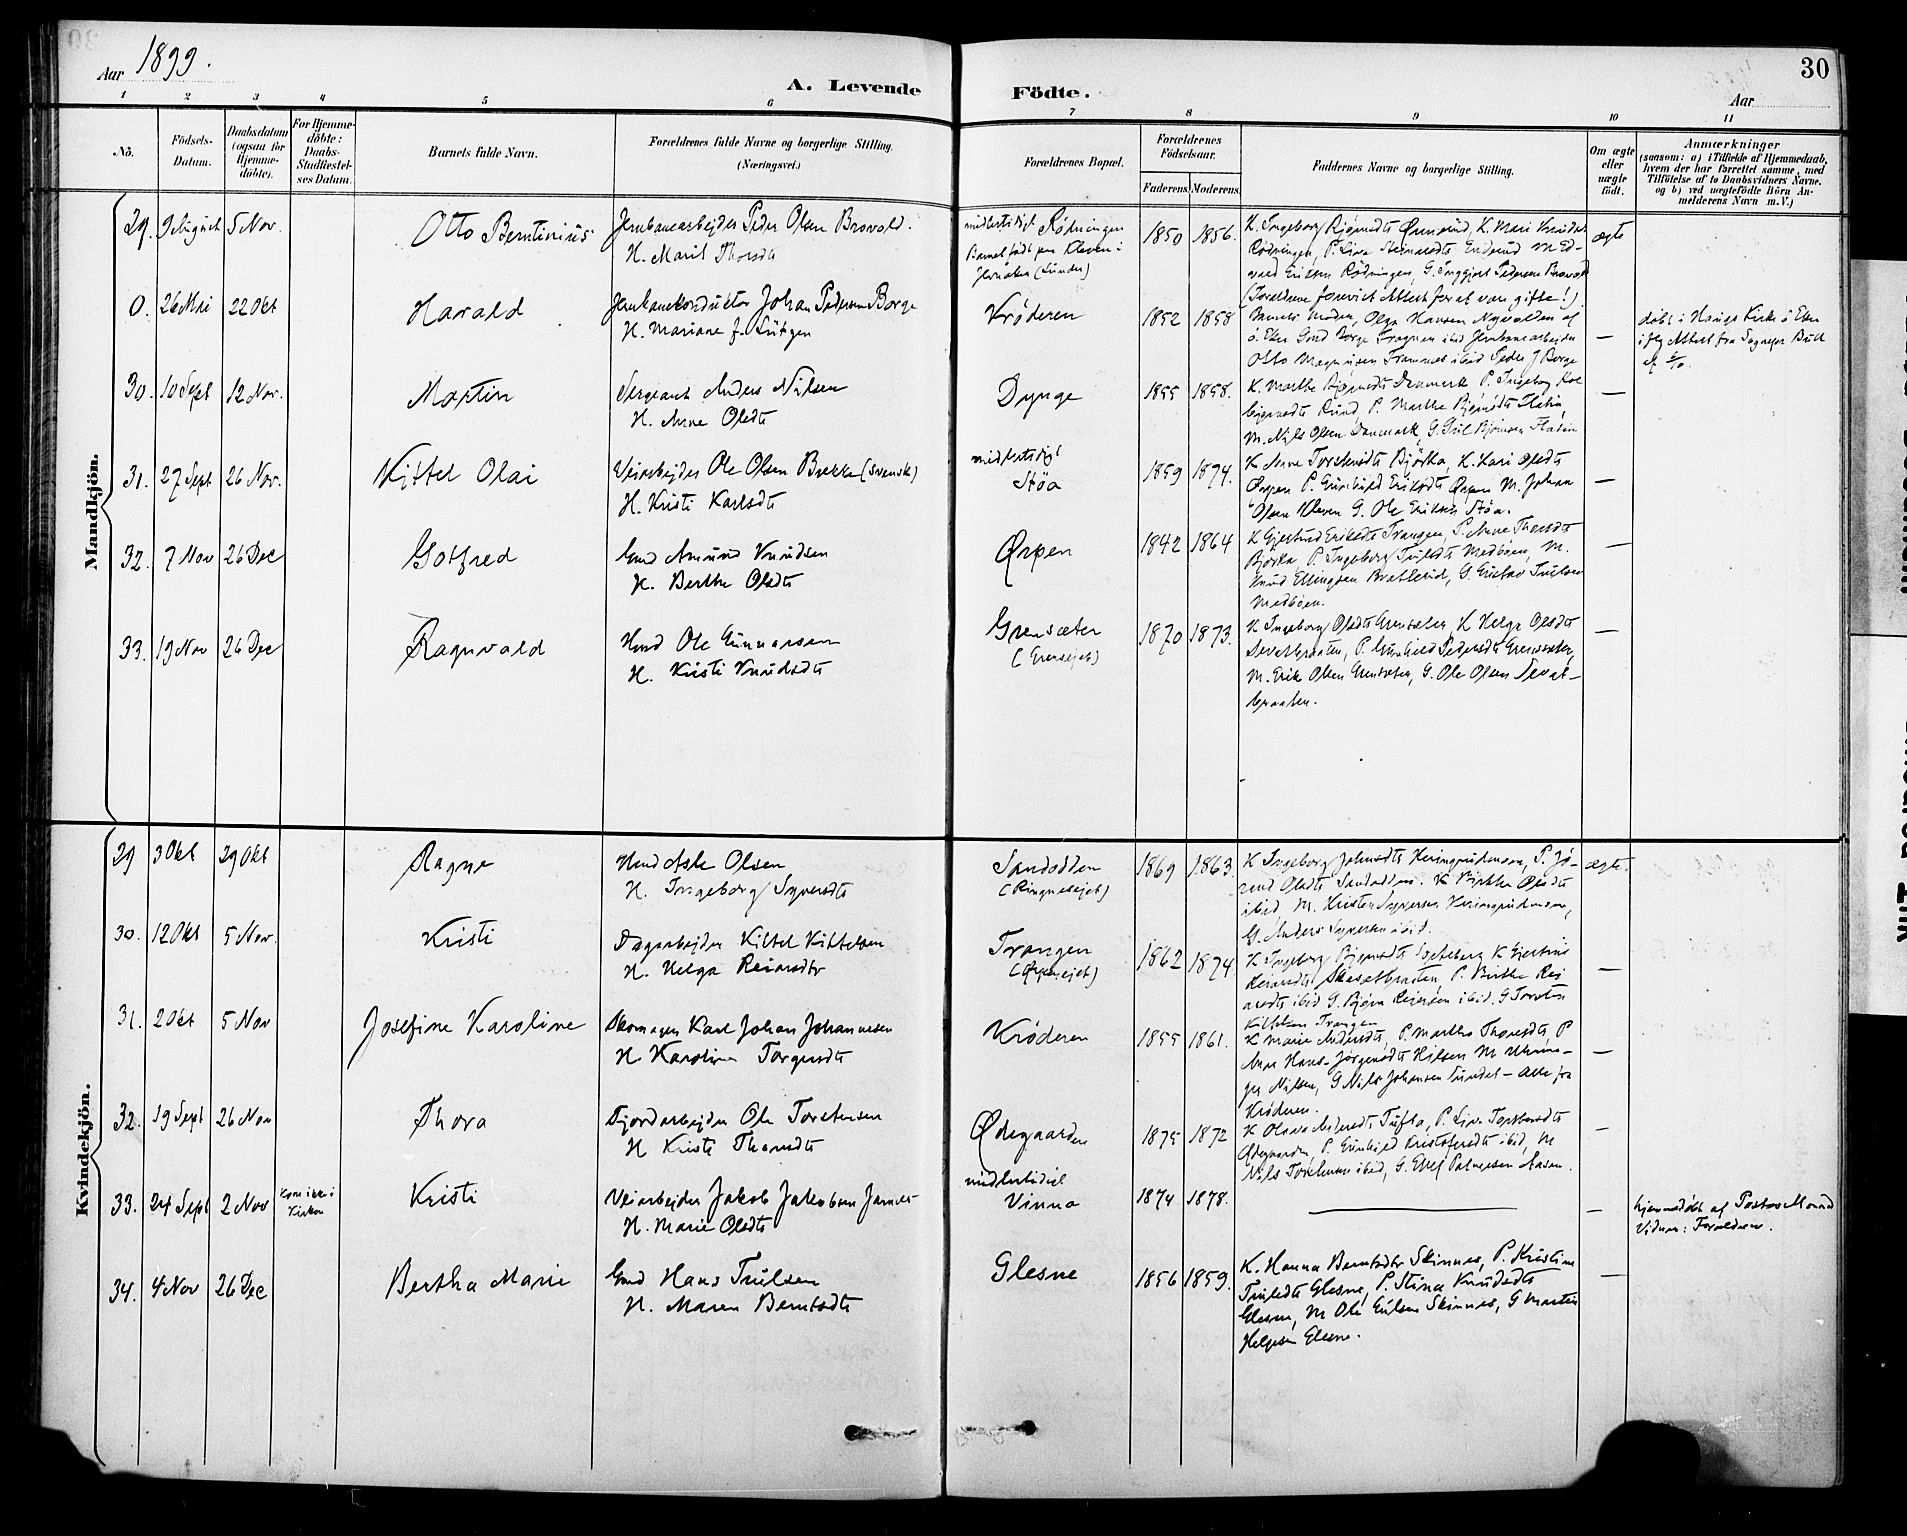 30
Aar 1899.
A. Levende Födte.
Aar
1 2 3 4 5 6 7 8 9 10 11
No.
Födsels-
Datum.
Daabsdatum
(ogsaa for
Hjemme-
döbte).
For Hjemme-
döbte:
Daabs-
Stadfæstel-
ses Datum.
Barnets fulde Navn.
Forældrenes fulde Navne og borgerlige Stilling.
(Næringsvei.)
Forældrenes Bopæl.
Forældrenes
Födselsaar.
Faderens.
Moderens.
Faddernes Navne og borgerlige Stilling.
Om ægte
eller
uægte
födt.
Anmærkninger
(saasom: a) i Tilfælde af Hjemmedaab,
hvem der har forrettet samme, med
Tilföielse af to Daabsvidners Navne,
og b) ved uægtefödte Börn An-
melderens Navn m. V.)
Mandkjön.
29. 9 August 5 Nov. Otto Berntinius
Jernbanearbejder Peder Olsen Brovold.
H. Marit Thorsdt
midlertidigt Rødningen
Barnet født paa Kleven i
(Sunder)
1850 1856.
K. Ingeborg K. Mari Knudsdt
Rødningen, P. Live M. Ed-
vard Eriksen Rødningen, G. Pedersen Brovold
(Forældrene forevist Attest for at være gifte!)
ægte
0. 26 Mai 22 Okt Harald
Jernbanekonduktør Johan Pedersen Borge
H. Mariane f. Lütgen
Krøderen
1852 1858
Barnets Moder, Olga Hansen af
ö. Eker Gmd Borge ibid Jernbanearbejder
Otto Magnusen ibid Peder J Borge
—
døbt i Haugs Kirke ö Eker
iflg Attest fra Sogneprr Bull
30. 10 Sept 12 Nov. Martin
Sergeant Anders Nilsen
H. Anne Olsdt
Dynge
1855 1858.
K. Marthe P. Ingeborg Kol-
Rud, P. Marthe Flatin,
M. Nils Olsen Danmark, G. Gul Bjørnsen Flatin
—
31. 27 Sept 26 Nov. Kittel Olai
Veiarbejder Ole Olsen Brekke (svensk)
H. Kristi Karlsdt
midlertidigt
Støa
1859 1874.
K Anne Torstensdt Bjørka, K. Kari Olsdt
Ørpen P. Gunhild Eriksdt Ørpen M. Johan
Olsen Kleven G. Ole Eriksen Støa.
—
32. 7 Nov 26 Dec Gotfred
Gmd Amund Knudsen
H. Berthe Olsdt
Ørpen
1842 1864
K Gjertrud Eriksdt Trangen, P. Anne Thorsdt
Bjørka, P. Ingeborg Trulsdt Medbøen, M.
Knud Ellingsen Bratterud, G. Gustav Trulsen
Medbøen.
—
33. 19 Nov 26 Dec Ragnvald
Hmd Ole Gunnarsen
H. Kristi Knudsdt
Grensæter
(Grenseiet)
1870 1873.
K Ingeborg Olsdt Grensæter K Helga Olsdt
P. Gunhild Pedersdt Grensæter,
M. Erik Olsen Grensæter, G. Ole Olsen
—
Kvindekjön.
29 3 Okt 29 Okt Ragne
Hmd Asle Olsen
H. Ingeborg Syversdt
Sandodden
(Ringneseiet)
1869 1863.
K Ingeborg Johnsdt P. Jø-
rand Olsdt Sandodden. K Birthe Olsdt
ibid, M. Kristen Syversen
G. Anders Syversen ibid.
ægte.
30. 12 Okt 5 Nov. Kristi
Dagarbejder Kittel Kittelsen
H. Helga Reiersdtr
Trangen
(Ørpeneiet)
1862 1874
K Ingeborg K Gjertrud
Reiersdt P. Birthe Rei-
ersdt ibid G. Bjørn Reiersen ibid. G Torsten
Kittelsen Trangen
—
31. 2 Okt 5 Nov Josefine Karoline
Skomager Karl Johan Johannesen
H Karoline Torgersdt
Krøderen
1855 1861.
K Marie Andersdt, P. Marthe Thoresdt, P
Anne Hans-Jørgensdt Nilsen M
Nilsen, G Nils Johansen Sundet – Alle fra
Krøderen.
—
32. 19 Sept 26 Nov Thora
Fjordarbejder Ole Torstensen
H Kristi Thorsdt
Ødegaarden
1875 1872
K Olava Tufta, P. Live Torstensdt
Ødegaarden, P. Gunhild Kristofersdt ibid, M
Nils Torstensen ibid, G. Aasen.
—
33. 24 Sept 2 Nov Kom ikke i
Kirken
Kristi
Veiarbejder Jakob Jakobsen
H. Marie Olsdt
midlertidigt
Vinna
1874 1878.
—
hjemmedøbt af Pastor
Vidner: Forældrene.
34. 4 Nov 26 Dec Bertha Marie
Gmd Hans Trulsen
H. Maren Berntsdt
Glesne
1856 1859.
K. Hanna Berntsdtr Skinnes, P. Kristine
Trulsdt Glesne, P. Stina Knudsdt
Glesne, M Ole Gulsen Skinnes, G Martin
Helgesen Glesne.
—